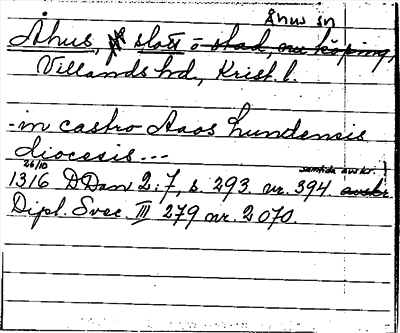 Åhus sn
Åhus, slott o stad, nu köping,
Villands hd., Krist. l.
- in castro Aaos Lundensis
diocesis ---
26/10 samtida avskr.
1316 DDan 2:7, s. 293. nr. 394. avskr.
Dipl. Svec. III 279 nr. 2070.